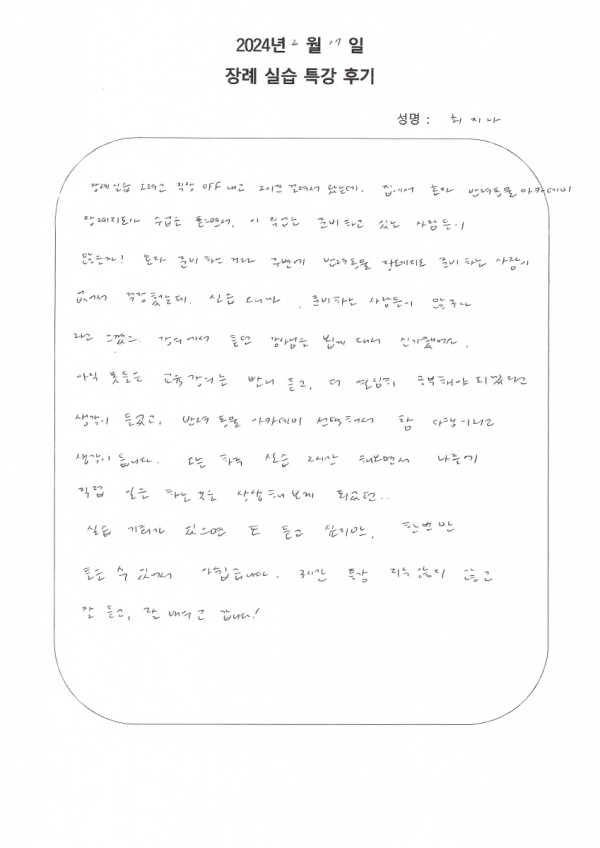 2024년 2 월 17 일
장례 실습 특강 후기
성명 : 최지나
장례실습 오려고 직장 OFF 내고 2시간 걸려서 왔는데. 집에서 혼자 반려동물아카데미
장례지도사 수업을 들으면서, 이 직업을 준비하고 있는 사람들이
많은지! 혼자 준비하는거라 주변에 반려동물 장례지도 준비하는 사람이
없어서 걱정했는데. 실습 오니까 준비하는 사람들이 많구나
라고 느꼈고. 강의에서 듣던 강사님을 뵙게 돼서 신기했어요.
아직 못들은 교육강의는 빨리 듣고, 더 열심히 공부해야 되겠다고
생각이 들었고, 반려동물 아카데미 선택해서 참 다행이라고
생각이 듭니다. 오늘 하루 실습 2시간 해보면서 나중에
직접 일을 하는 모습을 상상해보게 되었던..
실습 기회가 있으면 또 듣고 싶지만, 한번만
들을 수 있어서 아쉽습니다. 3시간 특강 지루하지 않고
잘 듣고, 잘 배우고 갑니다!